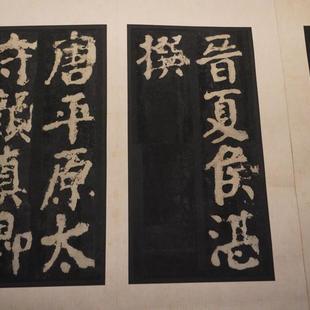 晉夏侯湛
撰
唐平原太
守顏真卿